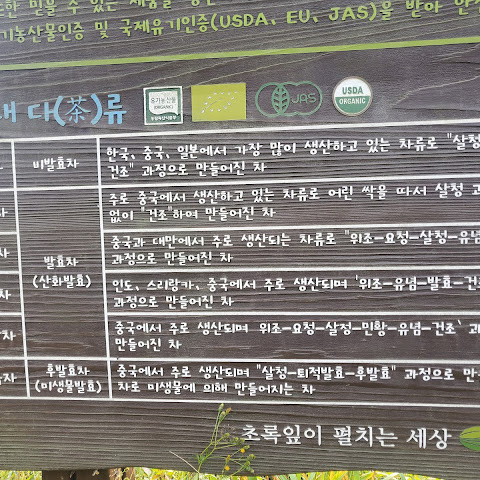 한 믿을 수 있는 제품을
기농산물인증 및 국제유기인증(USDA, EU, JAS)을 받아 안
대 다(茶)류
유기농산물
(ORGANIC)
JAS
USDA
ORGANIC
비발효차
한국, 중국, 일본에서 가장 많이 생산하고 있는 차류로 "살청
건조" 과정으로 만들어진 차
주로 중국에서 생산하고 있는 차류로 어린 싹을 따서 살청 과
없이 "건조"하여 만들어진 차
발효차
(산화발효)
중국과 대만에서 주로 생산되는 차류로 "위조-요청-살청-유념
과정으로 만들어진 차
인도, 스리랑카, 중국에서 주로 생산되며 '위조-유념-발효-건조
과정으로 만들어진 차
중국에서 주로 생산되며 위조-요청-살청-민황-유념-건조' 과
만들어진 차
후발효차
(미생물발효)
중국에서 주로 생산되며 "살청-퇴적발효-후발효" 과정으로 만
차로 미생물에 의해 만들어지는 차
초록잎이 펼치는 세상